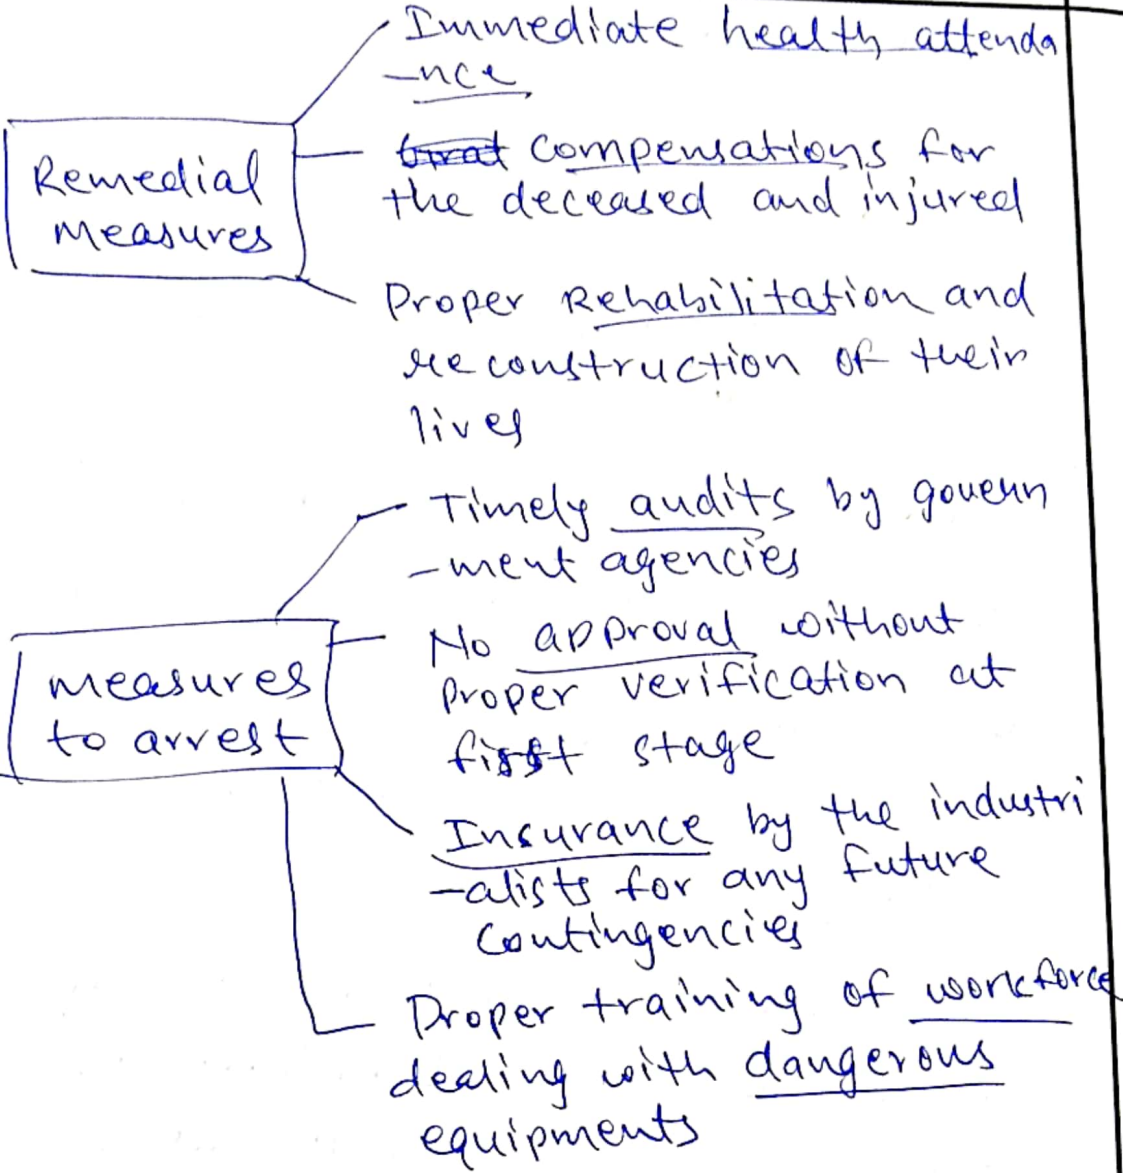 Immediate health attenda
-nce
Remedial
Measures
compensations for
the deceased and injured
Proper Rehabilitation and
reconstruction of their
lives
Timely audits by govern
-ment agencies
measures
to arrest
No approval without
proper verification at
first stage
Insurance by the industri
-alists for any future
contingencies
Proper training of workforce
dealing with dangerous
equipments